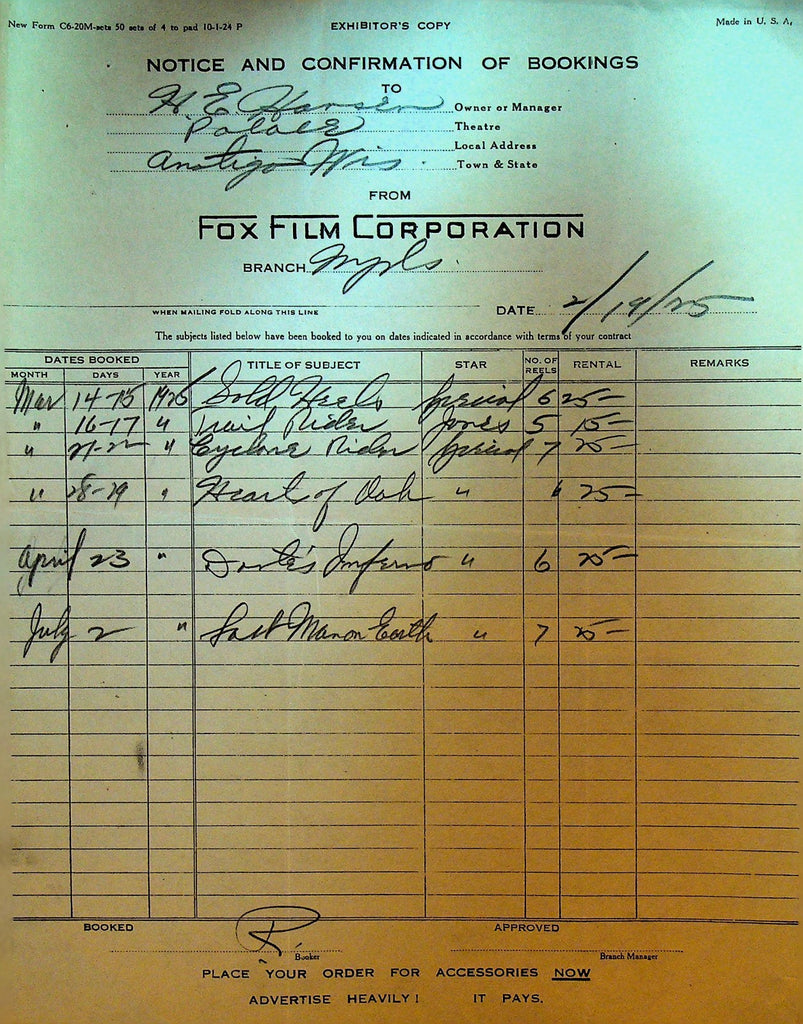 New Form C6-20M-sets 50 sets of 4 to pad 10-1-24 P EXHIBITOR'S COPY Made in U. S. A.
NOTICE AND CONFIRMATION OF BOOKINGS
TO
H. E. Hansen Owner or Manager
Palace Theatre
Local Address
Antigo Wis. Town & State
FROM
FOX FILM CORPORATION
BRANCH Mpls.
WHEN MAILING FOLD ALONG THIS LINE DATE 2/19/25
The subjects listed below have been booked to you on dates indicated in accordance with terms of your contract
DATES BOOKED TITLE OF SUBJECT STAR NO. OF REELS RENTAL REMARKS
MONTH DAYS YEAR
Mar 14-15 1925 Gold Heels Special 6 25-
" 16-17 " Trail Rider Jones 5 15-
" 21-22 " Cyclone Rider Special 7 25-
" 28-29 " Heart of Oak " " 25-
April 23 " Dante's Inferno " 6 25-
July 2 " Last Man on Earth " 7 25-
BOOKED R. APPROVED
Booker Branch Manager
PLACE YOUR ORDER FOR ACCESSORIES NOW
ADVERTISE HEAVILY! IT PAYS.